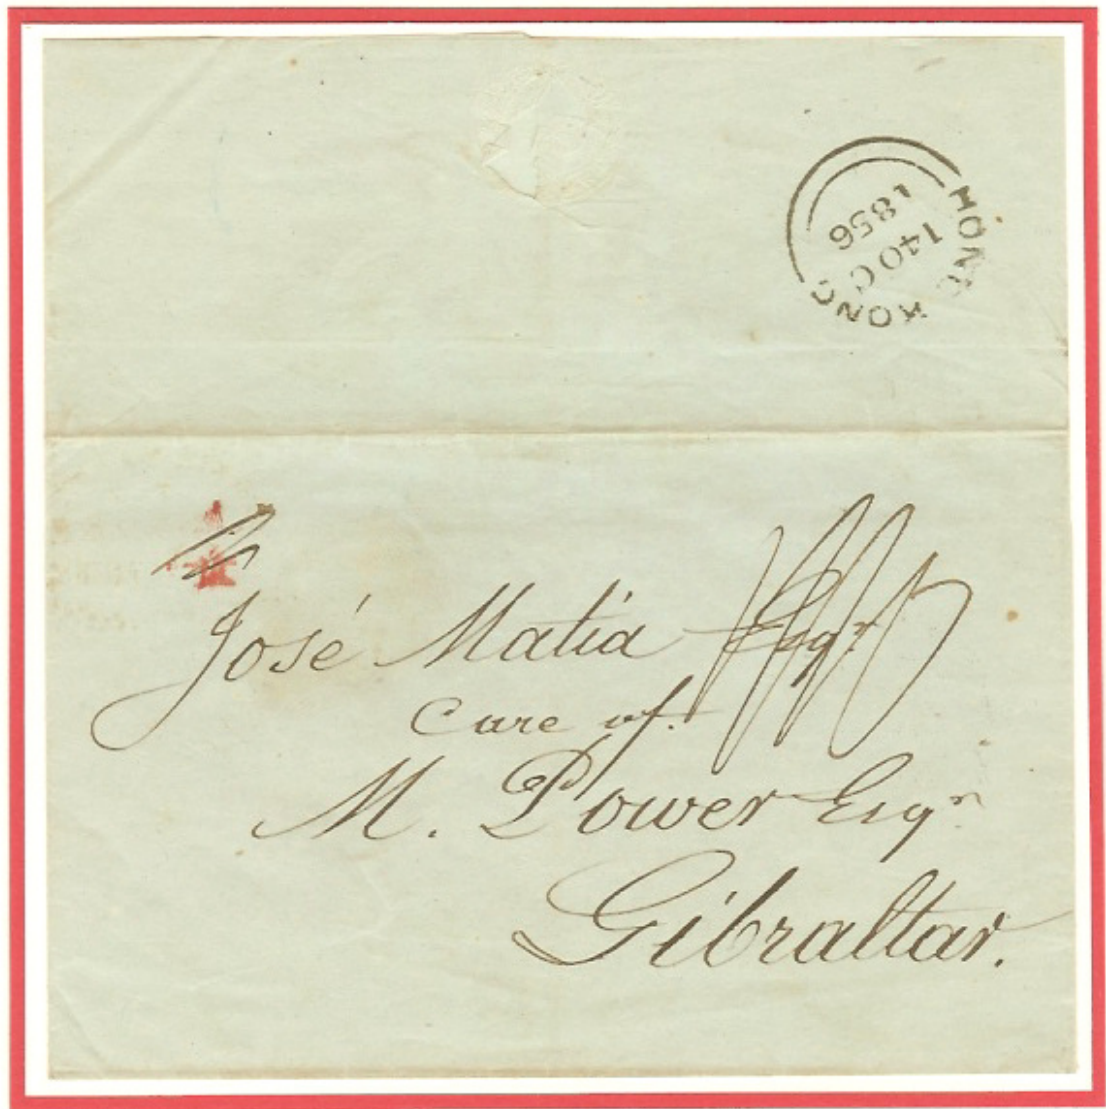 HONG KONG
14 OC
1856
José Matia Esqr
Care of.
M. Power Esqr
Gibraltar.